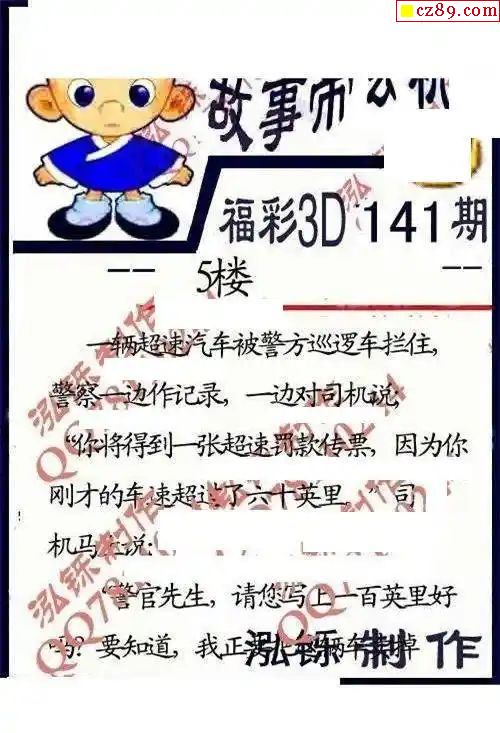 cz89.com
故事
福彩3D 141期
-- 5楼 --
一辆超速汽车被警方巡逻车拦住,
警察一边作记录,一边对司机说;
“你将得到一张超速罚款传票,因为你
刚才的车速超过了六十英里。” 司
机马上说:
“警官先生,请您写上一百英里好
吗? 要知道,我正
泓铄制作